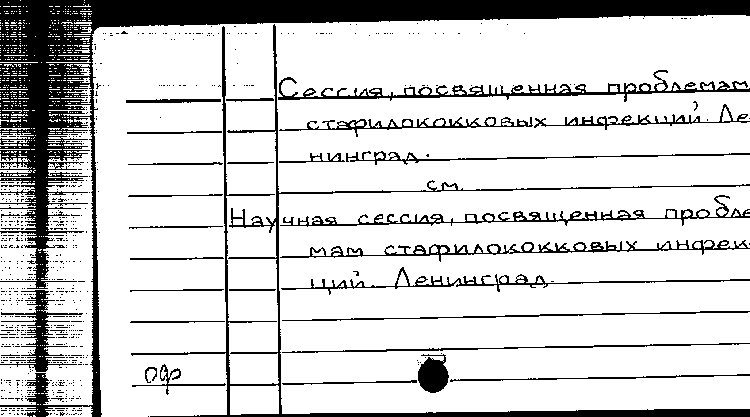 Сессия, посвященная проблемам
стафилококковых инфекций. Ле
нинград.
см.
Научная сессия, посвященная пробле
мам стафилококковых инфек
ций. Ленинград.
оф